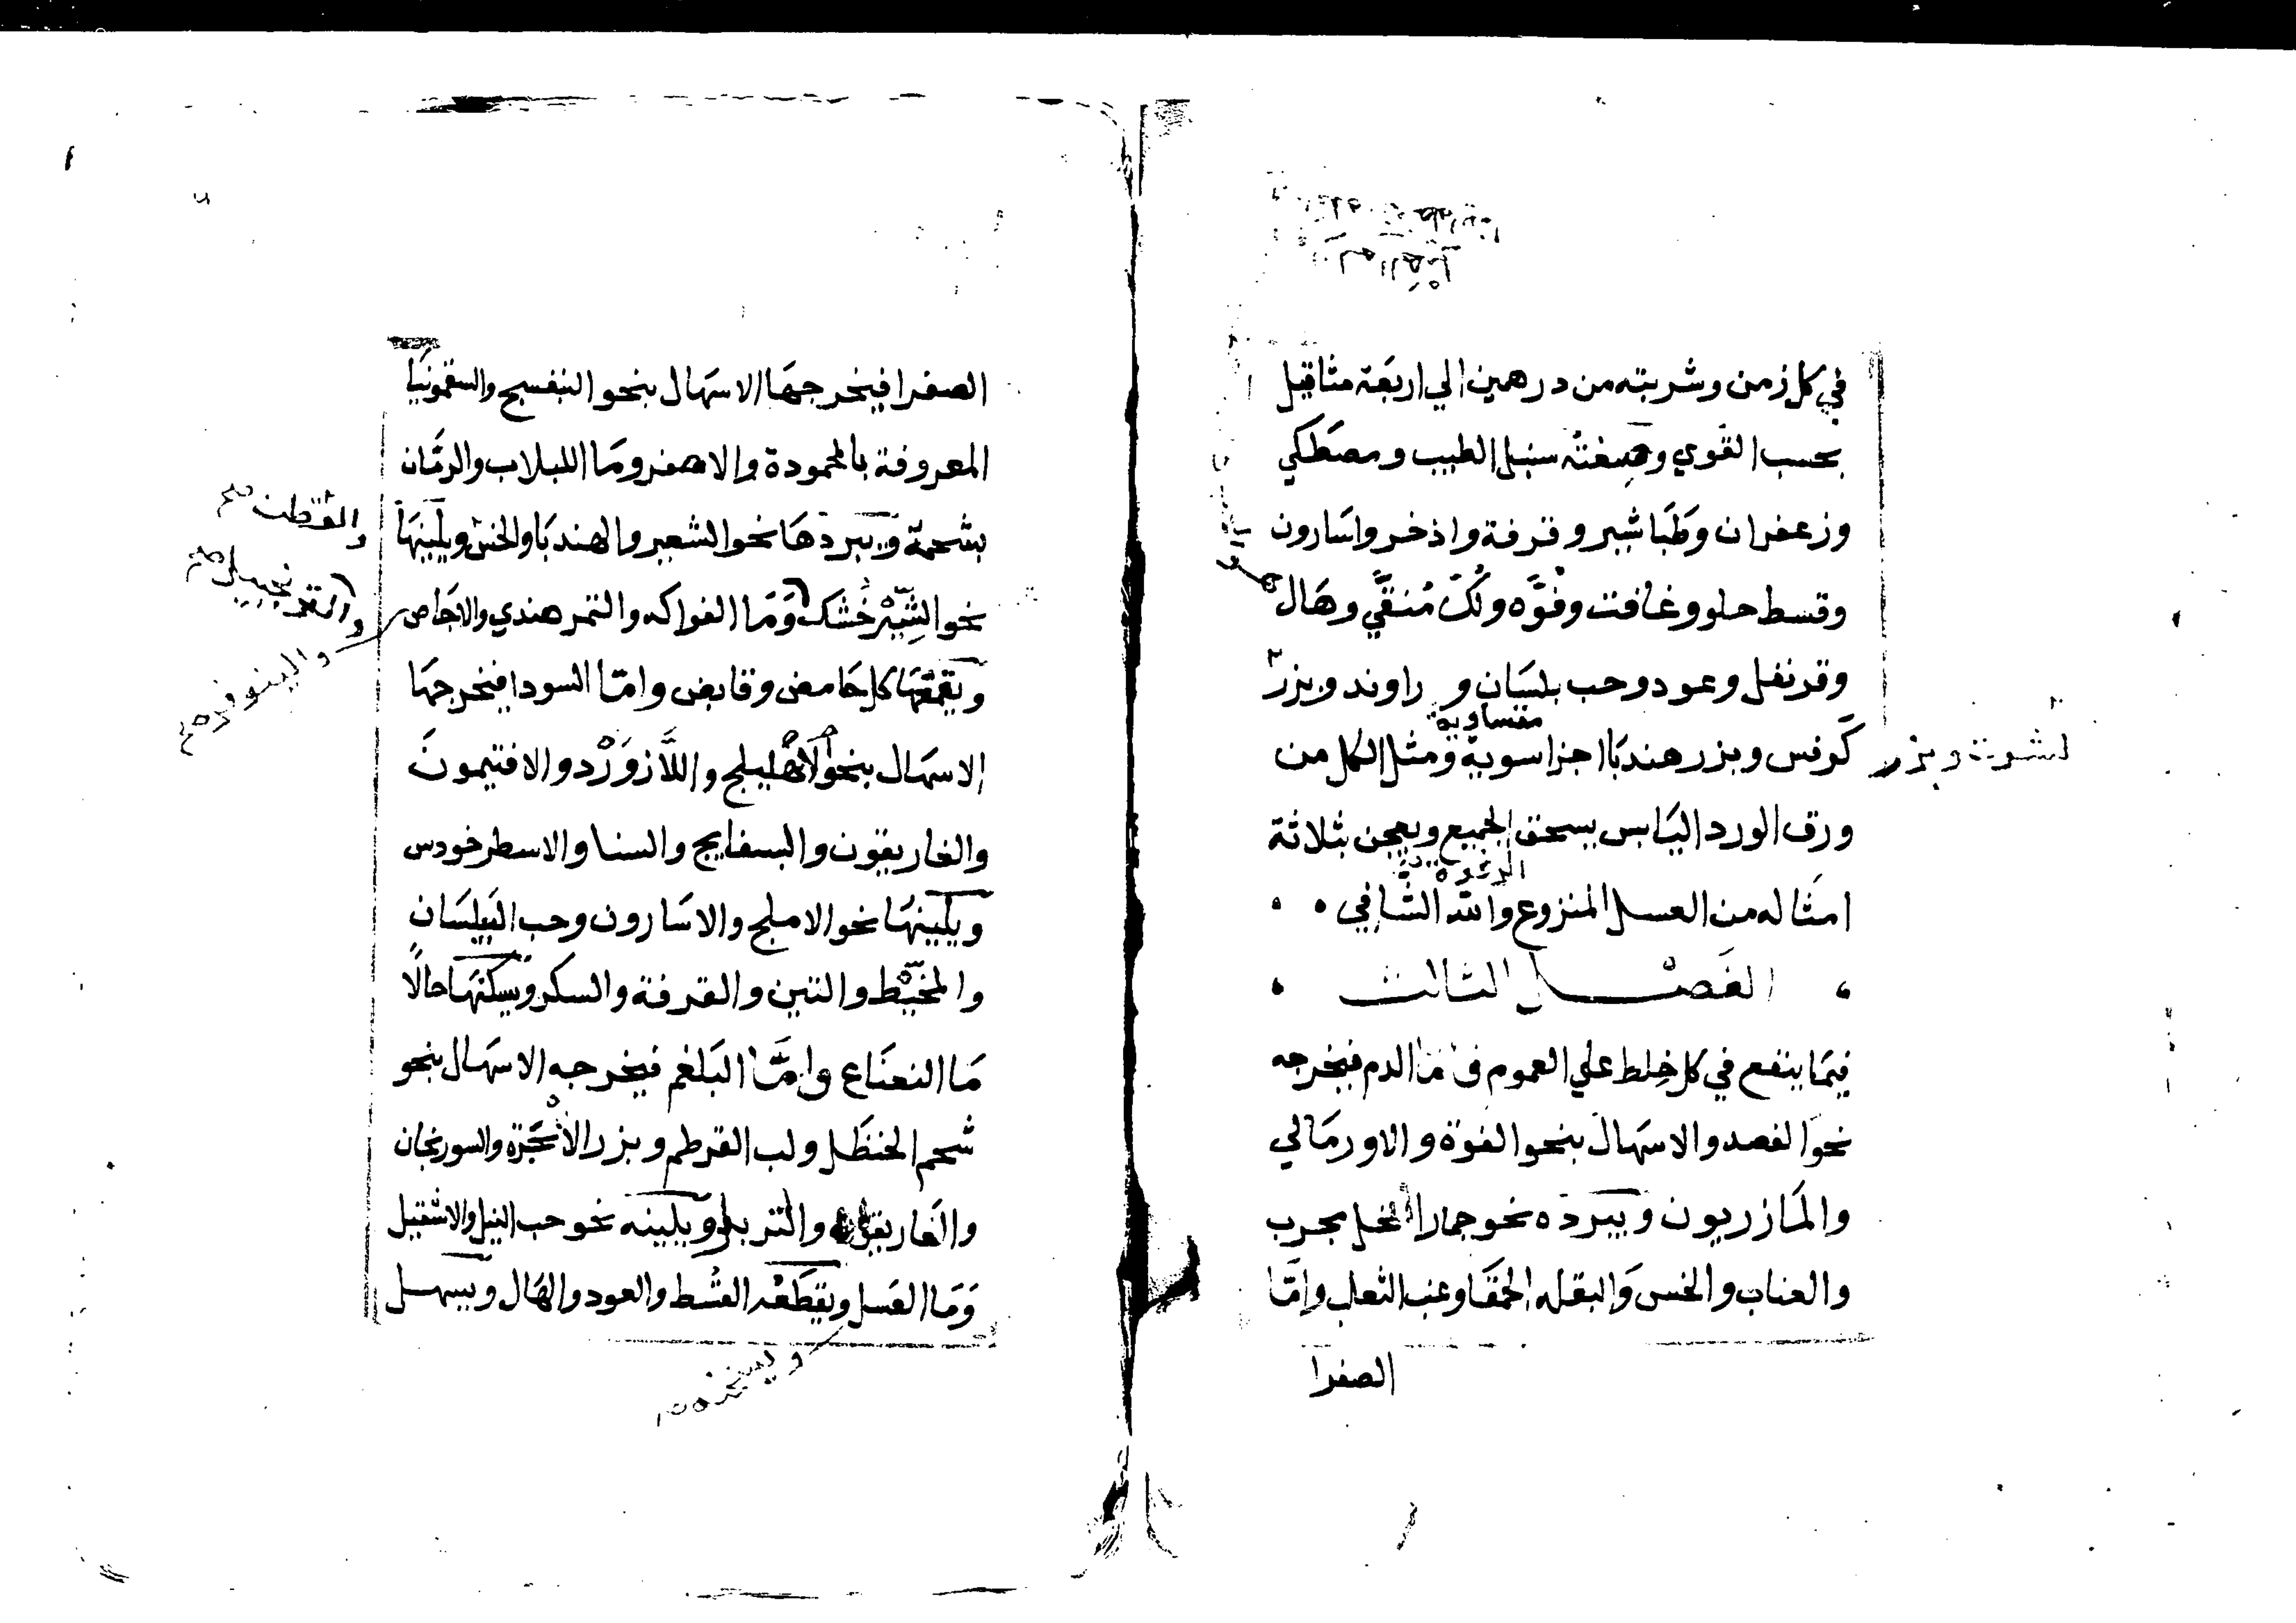 في كل زمن وشربته من درهمين الي اربعة مثاقيل
بحسب القوي وصفته سنبل الطيب ومصطكي
وزعفران وطباشير وقرفة واذخر واسارون
وقسط حلو وغافت وفوّه ولك منقّي وهال
وقرنفل وعود وحب بلسان و راوند وبزر
متساوية
كرفس وبزر هندبا اجزا سوية ومثل الكل من
كشوت وبزر
ورق الورد اليابس يسحق الجميع ويعجن بثلاثة
امثاله من العسل المنزوع والله الشافي
الفصل الثالث
فيما ينفع في كل خلط علي العموم فاما الدم فيخرجه
نحو الفصد والاسهال بنحو الفوة والاورمالي
والمازريون ويبرده نحو جمار النخل مجرب
والعناب والخس والبقله الحمقا وعنب الثعلب وامّا
الصفرا
الصفرا فيخرجها الاسهال بنحو البنفسج والسقمونيا
المعروفة بالمحمودة والاصفر وما اللبلاب والرمّان
بشحمة ويبردها نحو الشعير والهندبا والخس ويلينها
والقطن صح
نحو الشير خشك وما الفواكه والتمر هندي والاجاص
والترنجبيل صح
والينوفر صح
ويقمعها كل حامض وقابض وامّا السودا فيخرجها
الاسهال بنحو الاهليلج واللازورد والافتيمون
والغاريقون والبسفايج والسنا والاسطوخودس
ويلينها نحو الاملج والاسارون وحب البيلسان
والمخيط والتين والقرفة والسكر ويسكنها حالًا
ما النعناع وامّا البلغم فيخرجه الاسهال بنحو
شحم الحنظل ولب القرطم وبزر الانجرة والسورنجان
والغاريقون والتربد ويلينه نحو حب النيل والاشقيل
وما العسل ويقطعه القسط والعود والهال ويسهل
ويسخنه صح